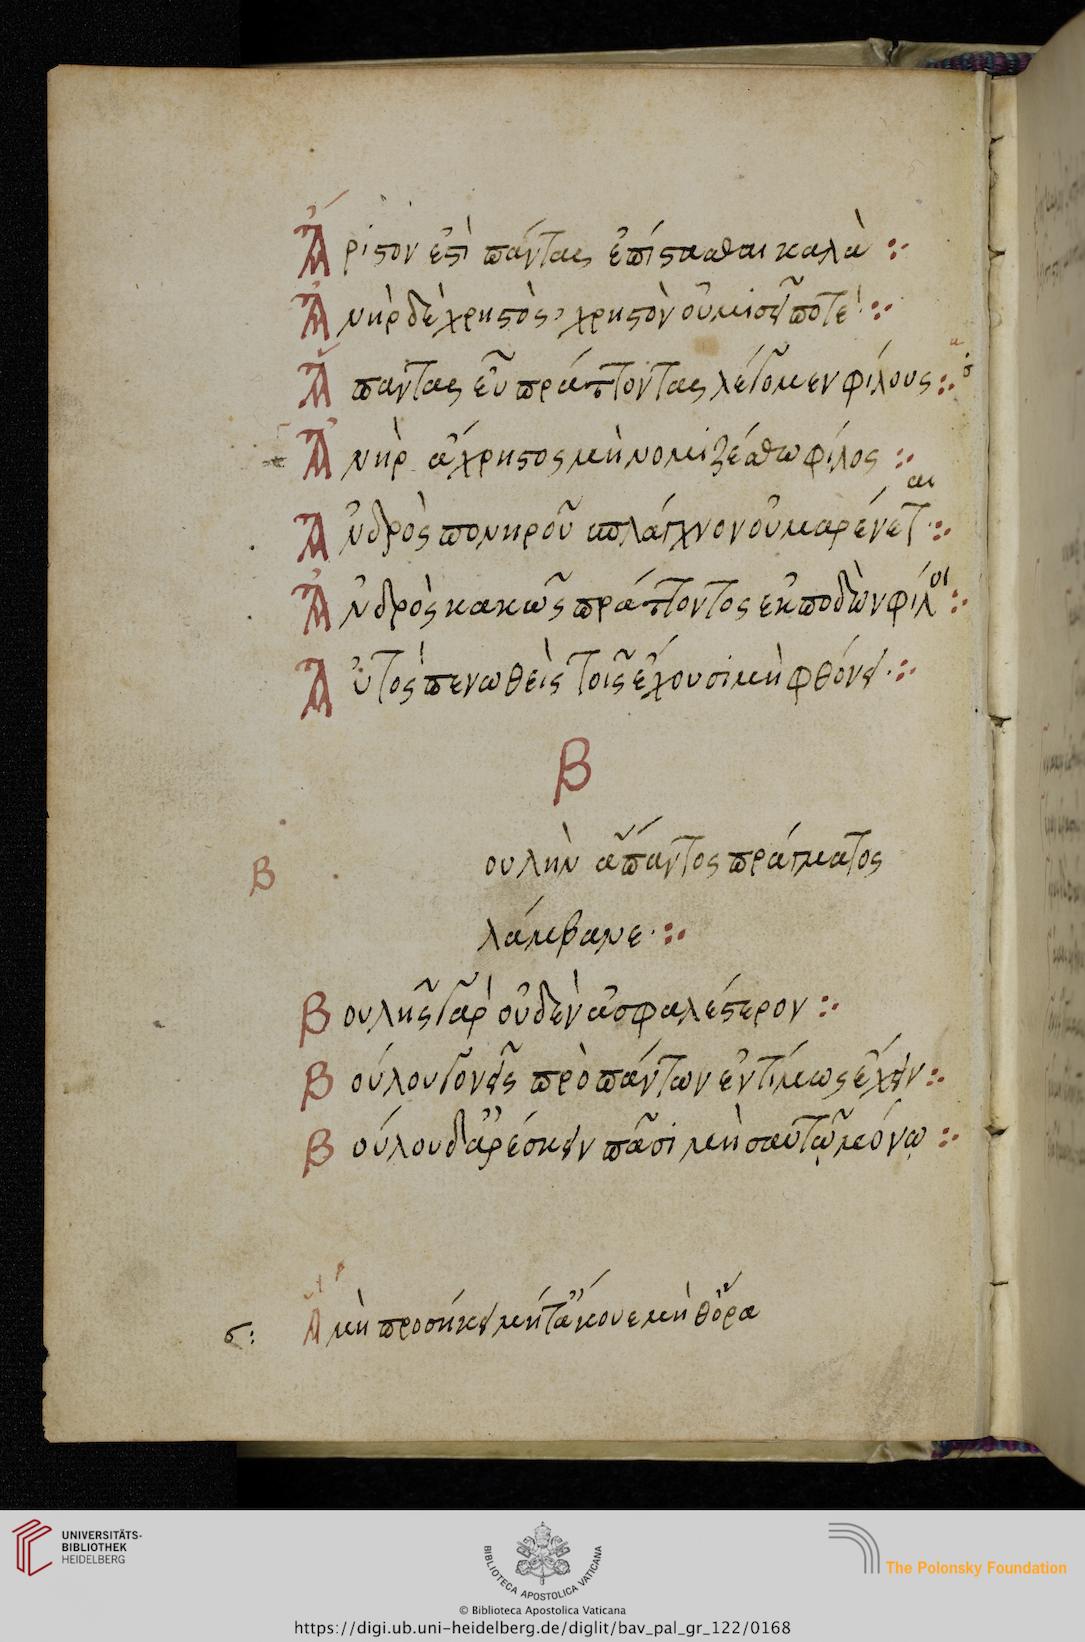 Ἄριστον ἐστὶ πάντας ἐπίστασθαι καλὰ
Ἀνὴρ δὲ χρηστὸς, χρηστὸν οὐ μισεῖ ποτέ
Ἅπαντας εὖ πράττοντας λέγομεν φίλους
Ἀνὴρ ἄχρηστος μὴ νομιζέσθω φίλος
Ἀνδρὸς πονηροῦ σπλάγχνον οὐ μαραίνεται
Ἀνδρὸς κακῶς πράττοντος ἐκποδὼν φίλοι
Αὐτὸς πενωθεὶς τοῖς ἔχουσι μὴ φθόνει
Β
Β ουλὴν ἅπαντος πράγματος
λάμβανε
Βουλῆς γὰρ οὐδὲν ἀσφαλέστερον
Βούλου γονεῖς πρὸ πάντων ἐντίμως ἔχειν
Βούλου δ ἀρέσκειν πᾶσι μὴ σαυτῷ μόνῳ
Ἃ μὴ προσήκει μήτ ἄκουε μὴ θ ὅρα
UNIVERSITÄTS-
BIBLIOTHEK
HEIDELBERG
BIBLIOTECA APOSTOLICA VATICANA
The Polonsky Foundation
© Biblioteca Apostolica Vaticana
https://digi.ub.uni-heidelberg.de/diglit/bav_pal_gr_122/0168